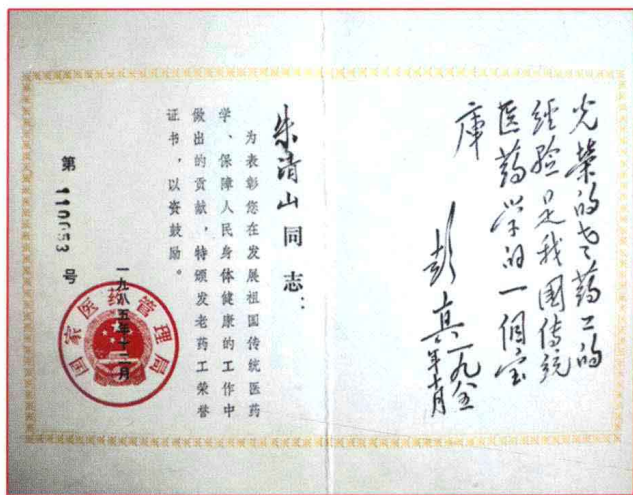 光荣的老药工的
经验是我国传统
医药学的一個宝
库
彭真一九八五
年十月
朱清山同志：
为表彰您在发展祖国传统医药
学、保障人民身体健康的工作中
做出的贡献，特颁发老药工荣誉
证书，以资鼓励。
国家医药管理局
一九八五年十二月
第110653号